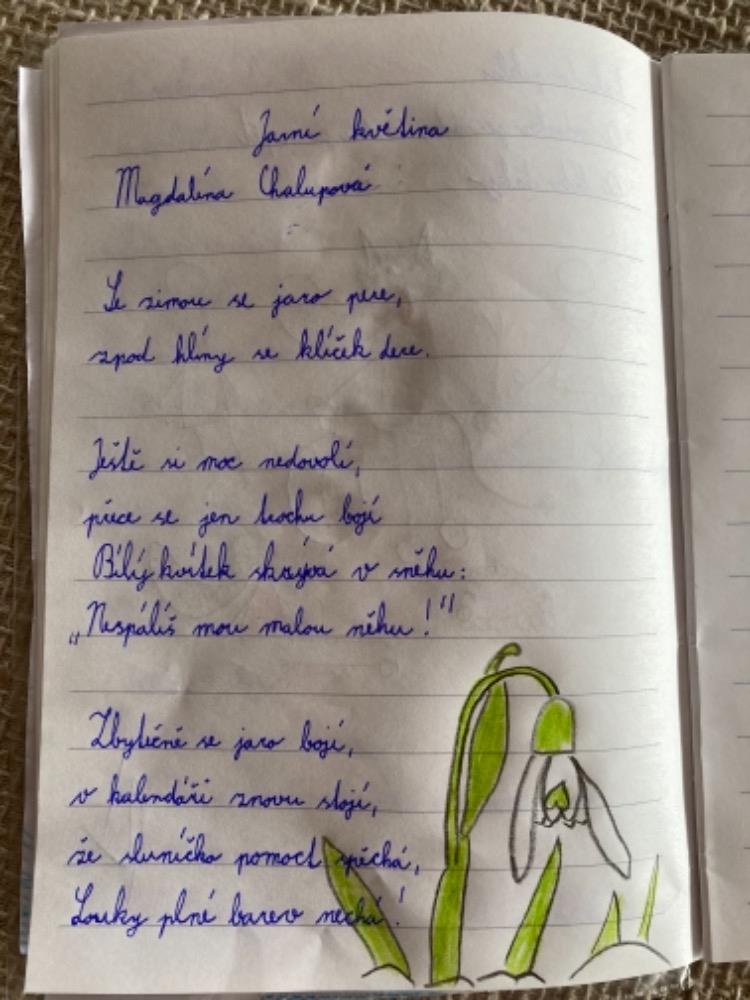 Jarní květina
Magdaléna Chalupová
Se zimou se jaro pere,
zpod hlíny se klíček dere.
Ještě si moc nedovolí,
přece se jen trochu bojí
Bílý kvítek skrývá v sněhu:
„Nespálíš mou malou něhu!"
Zbytečně se jaro bojí,
v kalendáři znovu stojí,
že sluníčko pomoct spěchá,
Louky plné barev nechá!